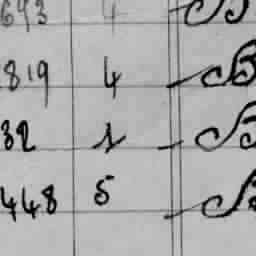 693 4 B
819 4 B
32 1 B
448 5